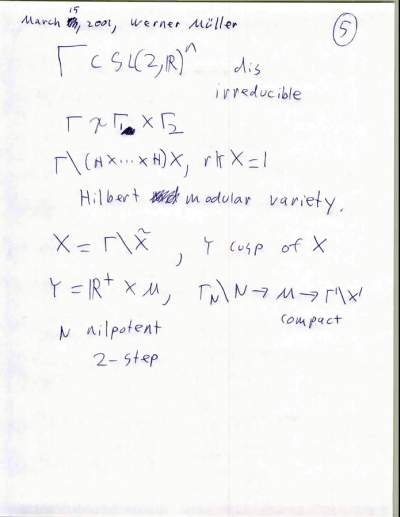 March 15, 2001, Werner Müller
5
Γ ⊂ SL(2,ℝ)^n dis
irreducible
Γ ≁ Γ₁ × Γ₂
Γ\(H×···×H)X, rk X=1
Hilbert modular variety.
X = Γ\X̃, Y cusp of X
Y = ℝ⁺ × M, Γ_N\N → M → Γ'\X'
compact
N nilpotent
2-step